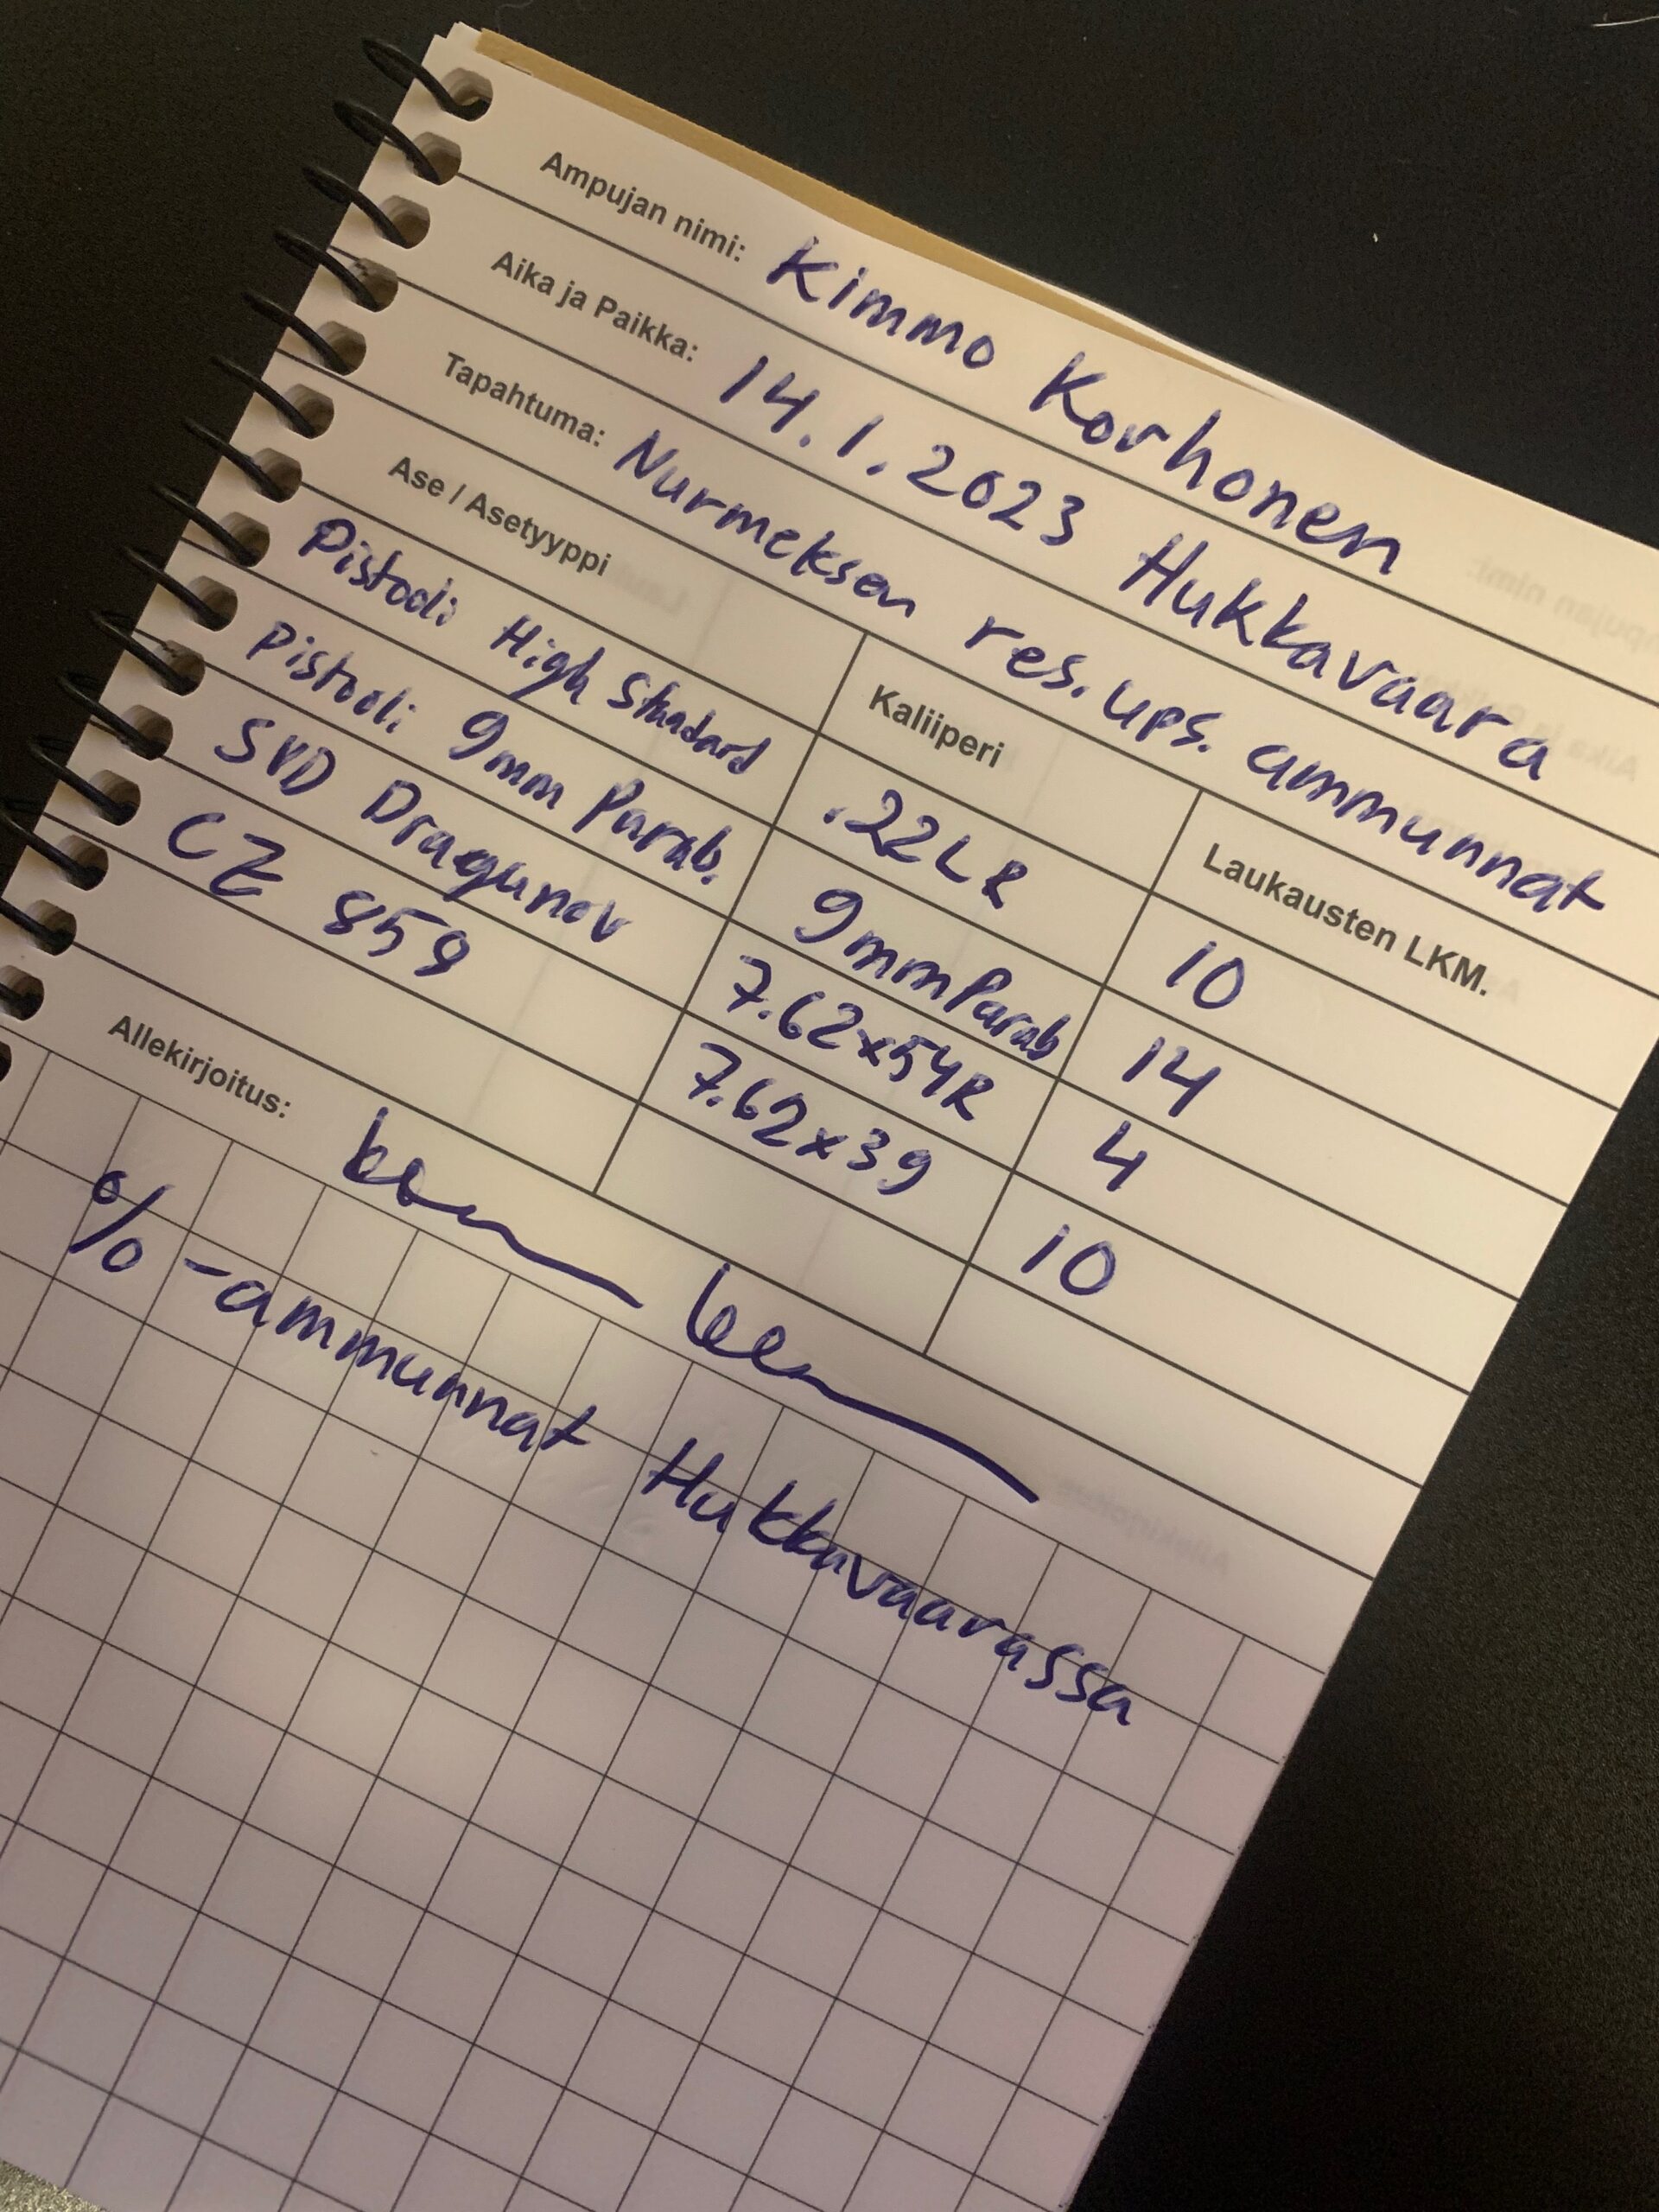 Ampujan nimi: Kimmo Korhonen
Aika ja Paikka: 14.1.2023 Hukkavaara
Tapahtuma: Nurmeksen res.ups. ammunnat
Ase / Asetyyppi Kaliiperi Laukausten LKM.
Pistooli High Stnadard .22LR 10
Pistooli 9mm Parab. 9mm Parab 14
SVD Dragunov 7.62x54R 4
CZ 858 7.62x39 10
Allekirjoitus:
% -ammunnat Hukkavaarassa